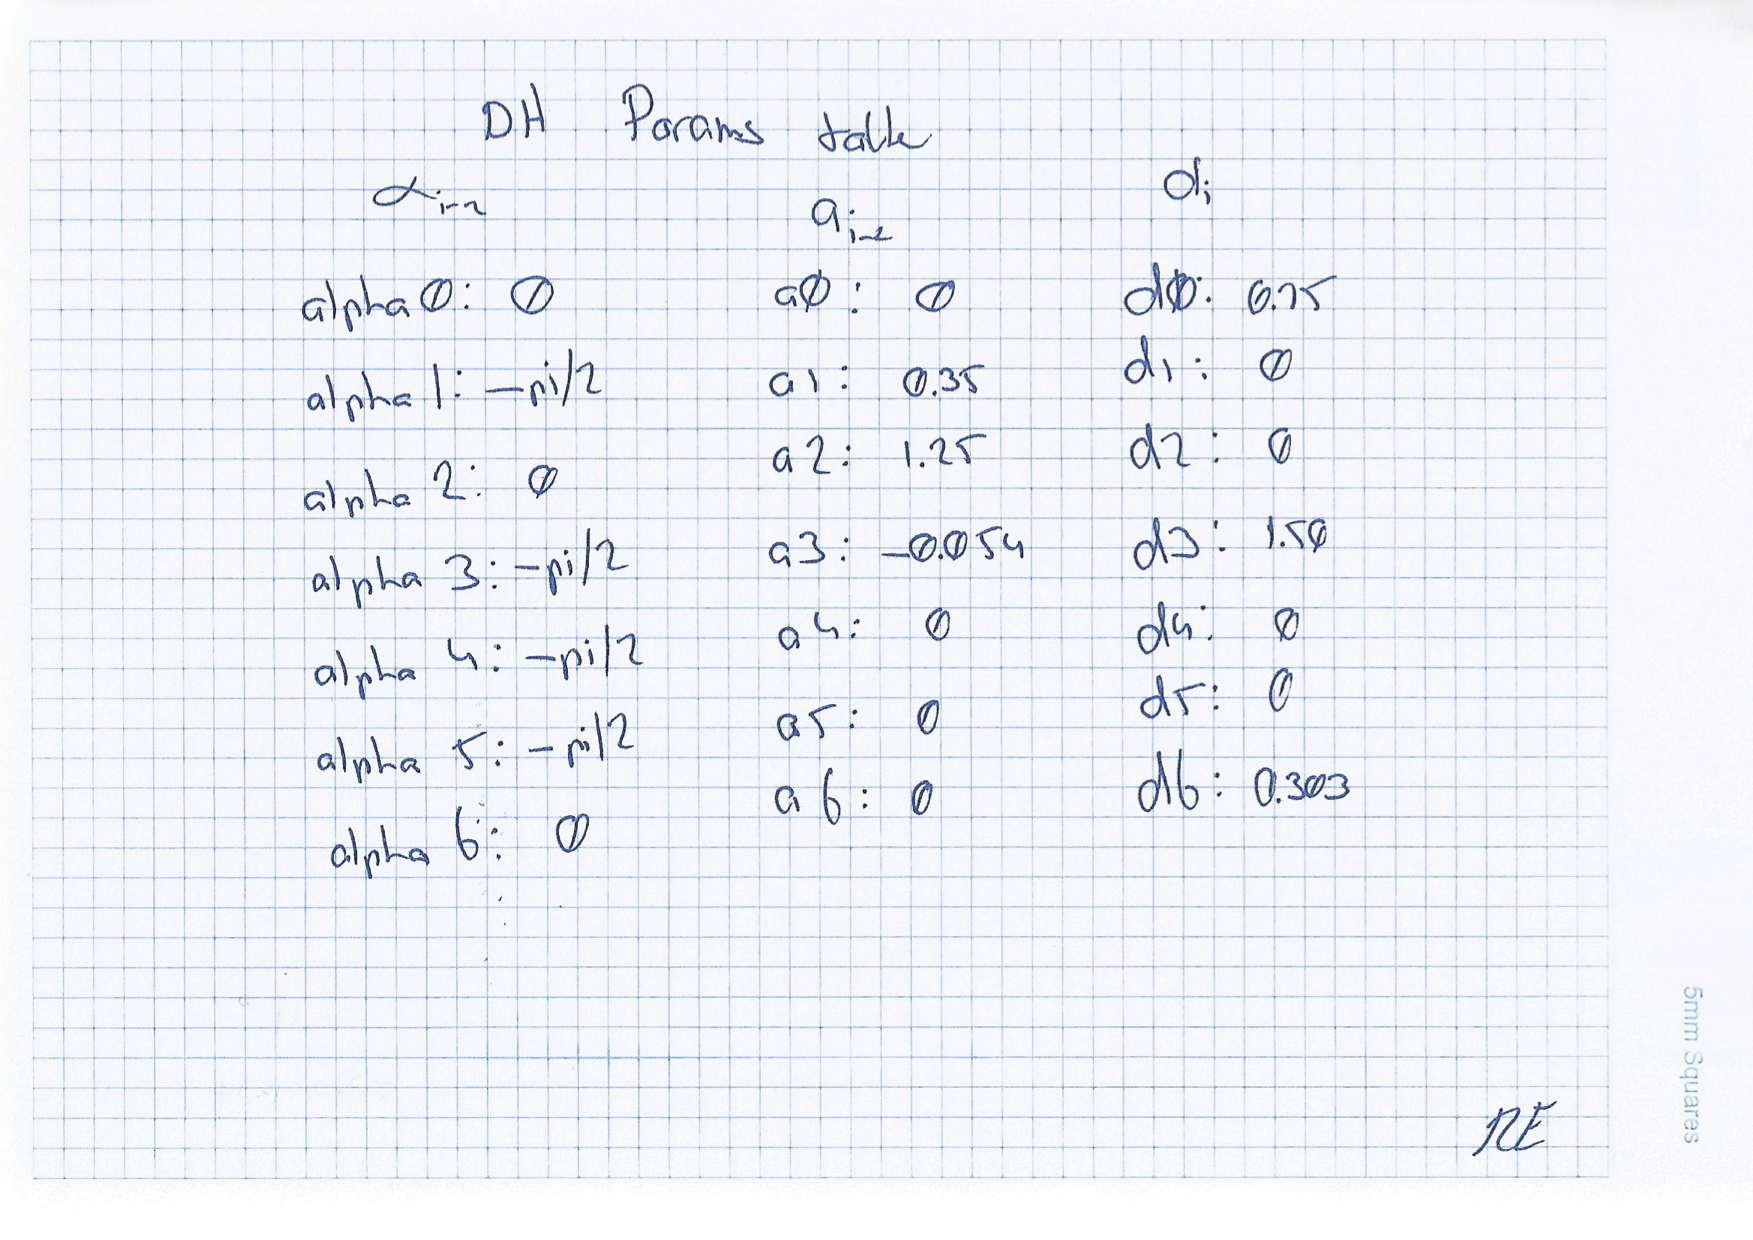 DH Params table
αi-1 ai-1 di
alpha0: 0 a0: 0 d0: 0.75
alpha 1: -pi/2 a1: 0.35 d1: 0
alpha 2: 0 a2: 1.25 d2: 0
alpha 3: -pi/2 a3: -0.054 d3: 1.50
alpha 4: -pi/2 a4: 0 d4: 0
alpha 5: -pi/2 a5: 0 d5: 0
alpha 6: 0 a6: 0 d6: 0.303
RE
5mm Squares